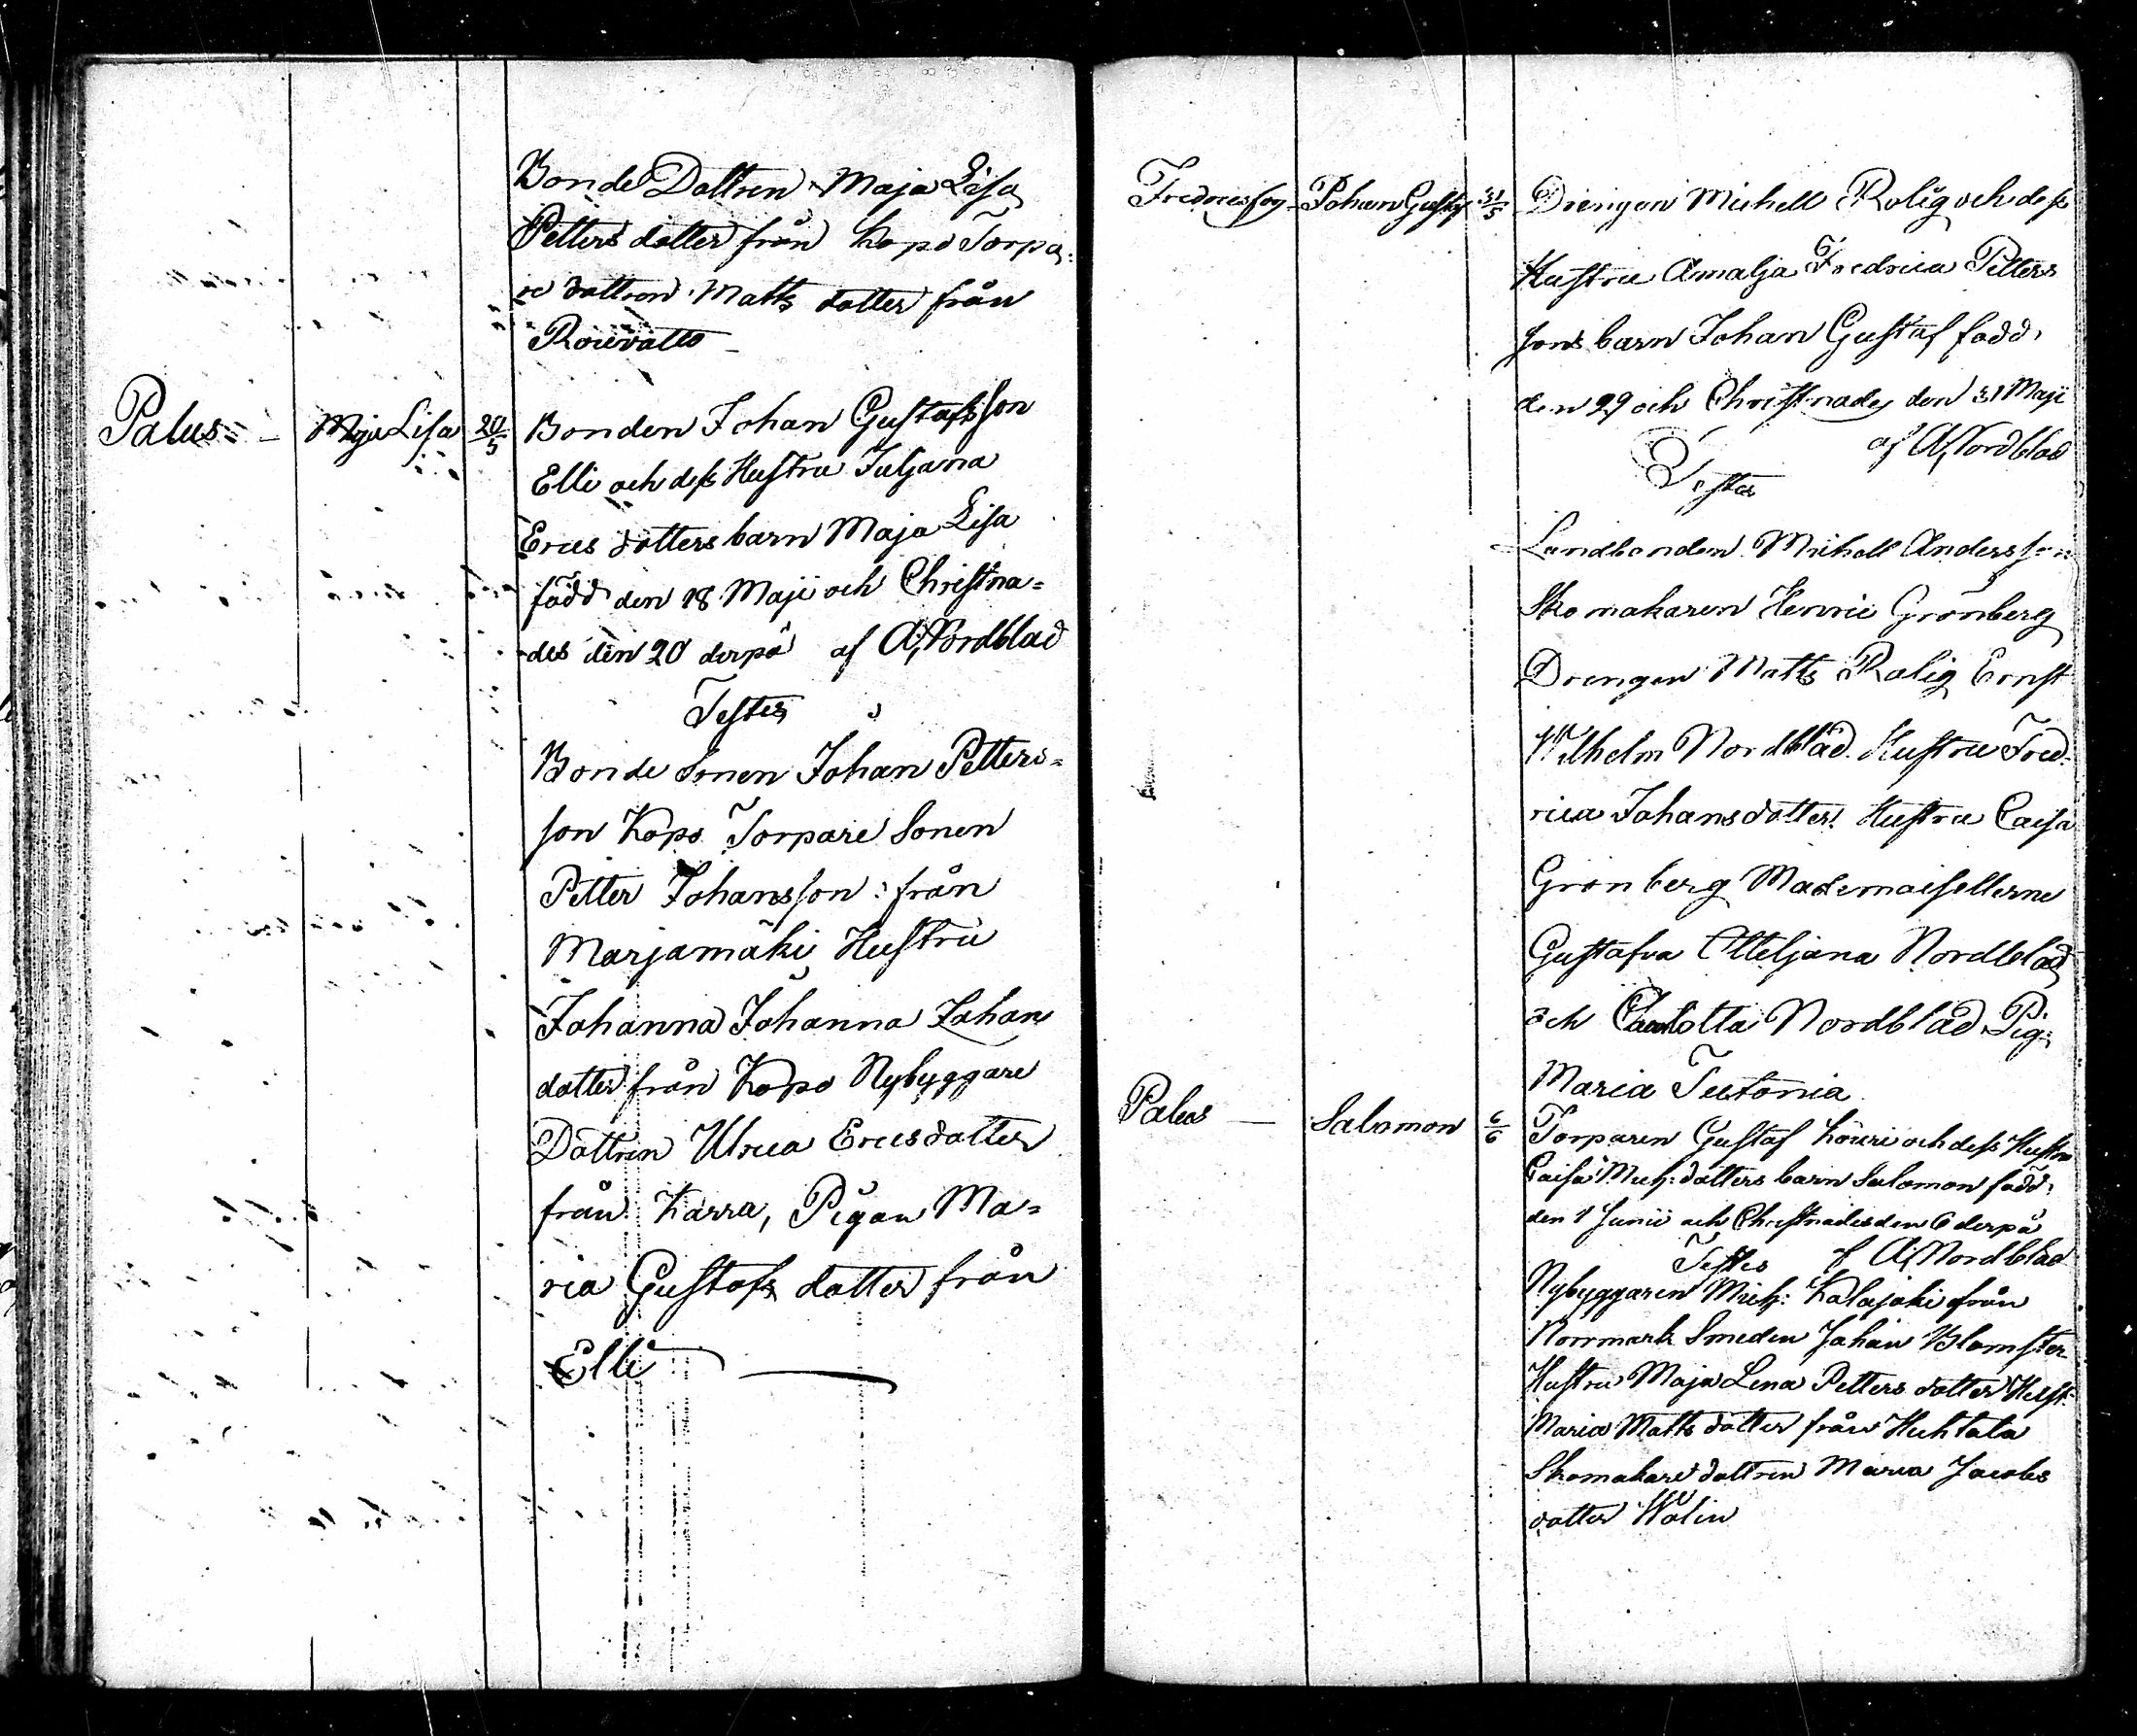 Bonde Dottren Maja Lisa
Petters dotter från Kopo Torpa
re dottren Matts dotter från
Palus Maja Lisa 20/5 Bonden Johan Gustafsson
Elli och dess Hustru Juljana
Erics dotters barn Maja Lisa
född den 18 Maji och Christna=
des den 20 derpå af A, Nordblad
Testes
Bonde Sonen Johan Petters=
son Kopo Torpare Sonen
Petter Johansson från
Marjamäki Hustru
Johanna Johanna Johans
dotter från Kopo Nybyggare
Dottren Ulrica Ericsdotter
från Karra, Pigan Ma=
ria Gustafs dotter från
Elli
Johan Gustaf 31/5 Drengen Michell Rolig och dess
Hustru Amalja Fredrica Petters
sons barn Johan Gustaf född
den 29 och Christnades den 31 Maji
af A, Nordblad
Testes
Landbonden Michell Andersson
Skomakaren Henric Grönberg
Drengen Matts Rolig Ernst
Wilhelm Nordblad Hustru Fred
rica Johansdotter Hustru Caisa
Grönberg Mademoisellerne
Gustafva Nordblad
och Charlotta Nordblad Pig:
Maria
Palus Salomon 6/6 Torparen Gustaf och dess Hustru
Caisa Mich: dotters barn Salomon född
den 1 Junii och Christnades den 6 derpå
Testes af A, Nordblad
Nybyggaren Mich: Kalajoki från
Norrmark Smeden Johan Blomster
Hustru Maja Lena Petters dotter Hust:
Maria Matts dotter från Huhtala
Skomakare dottren Maria Jacobs
dotter Wolin